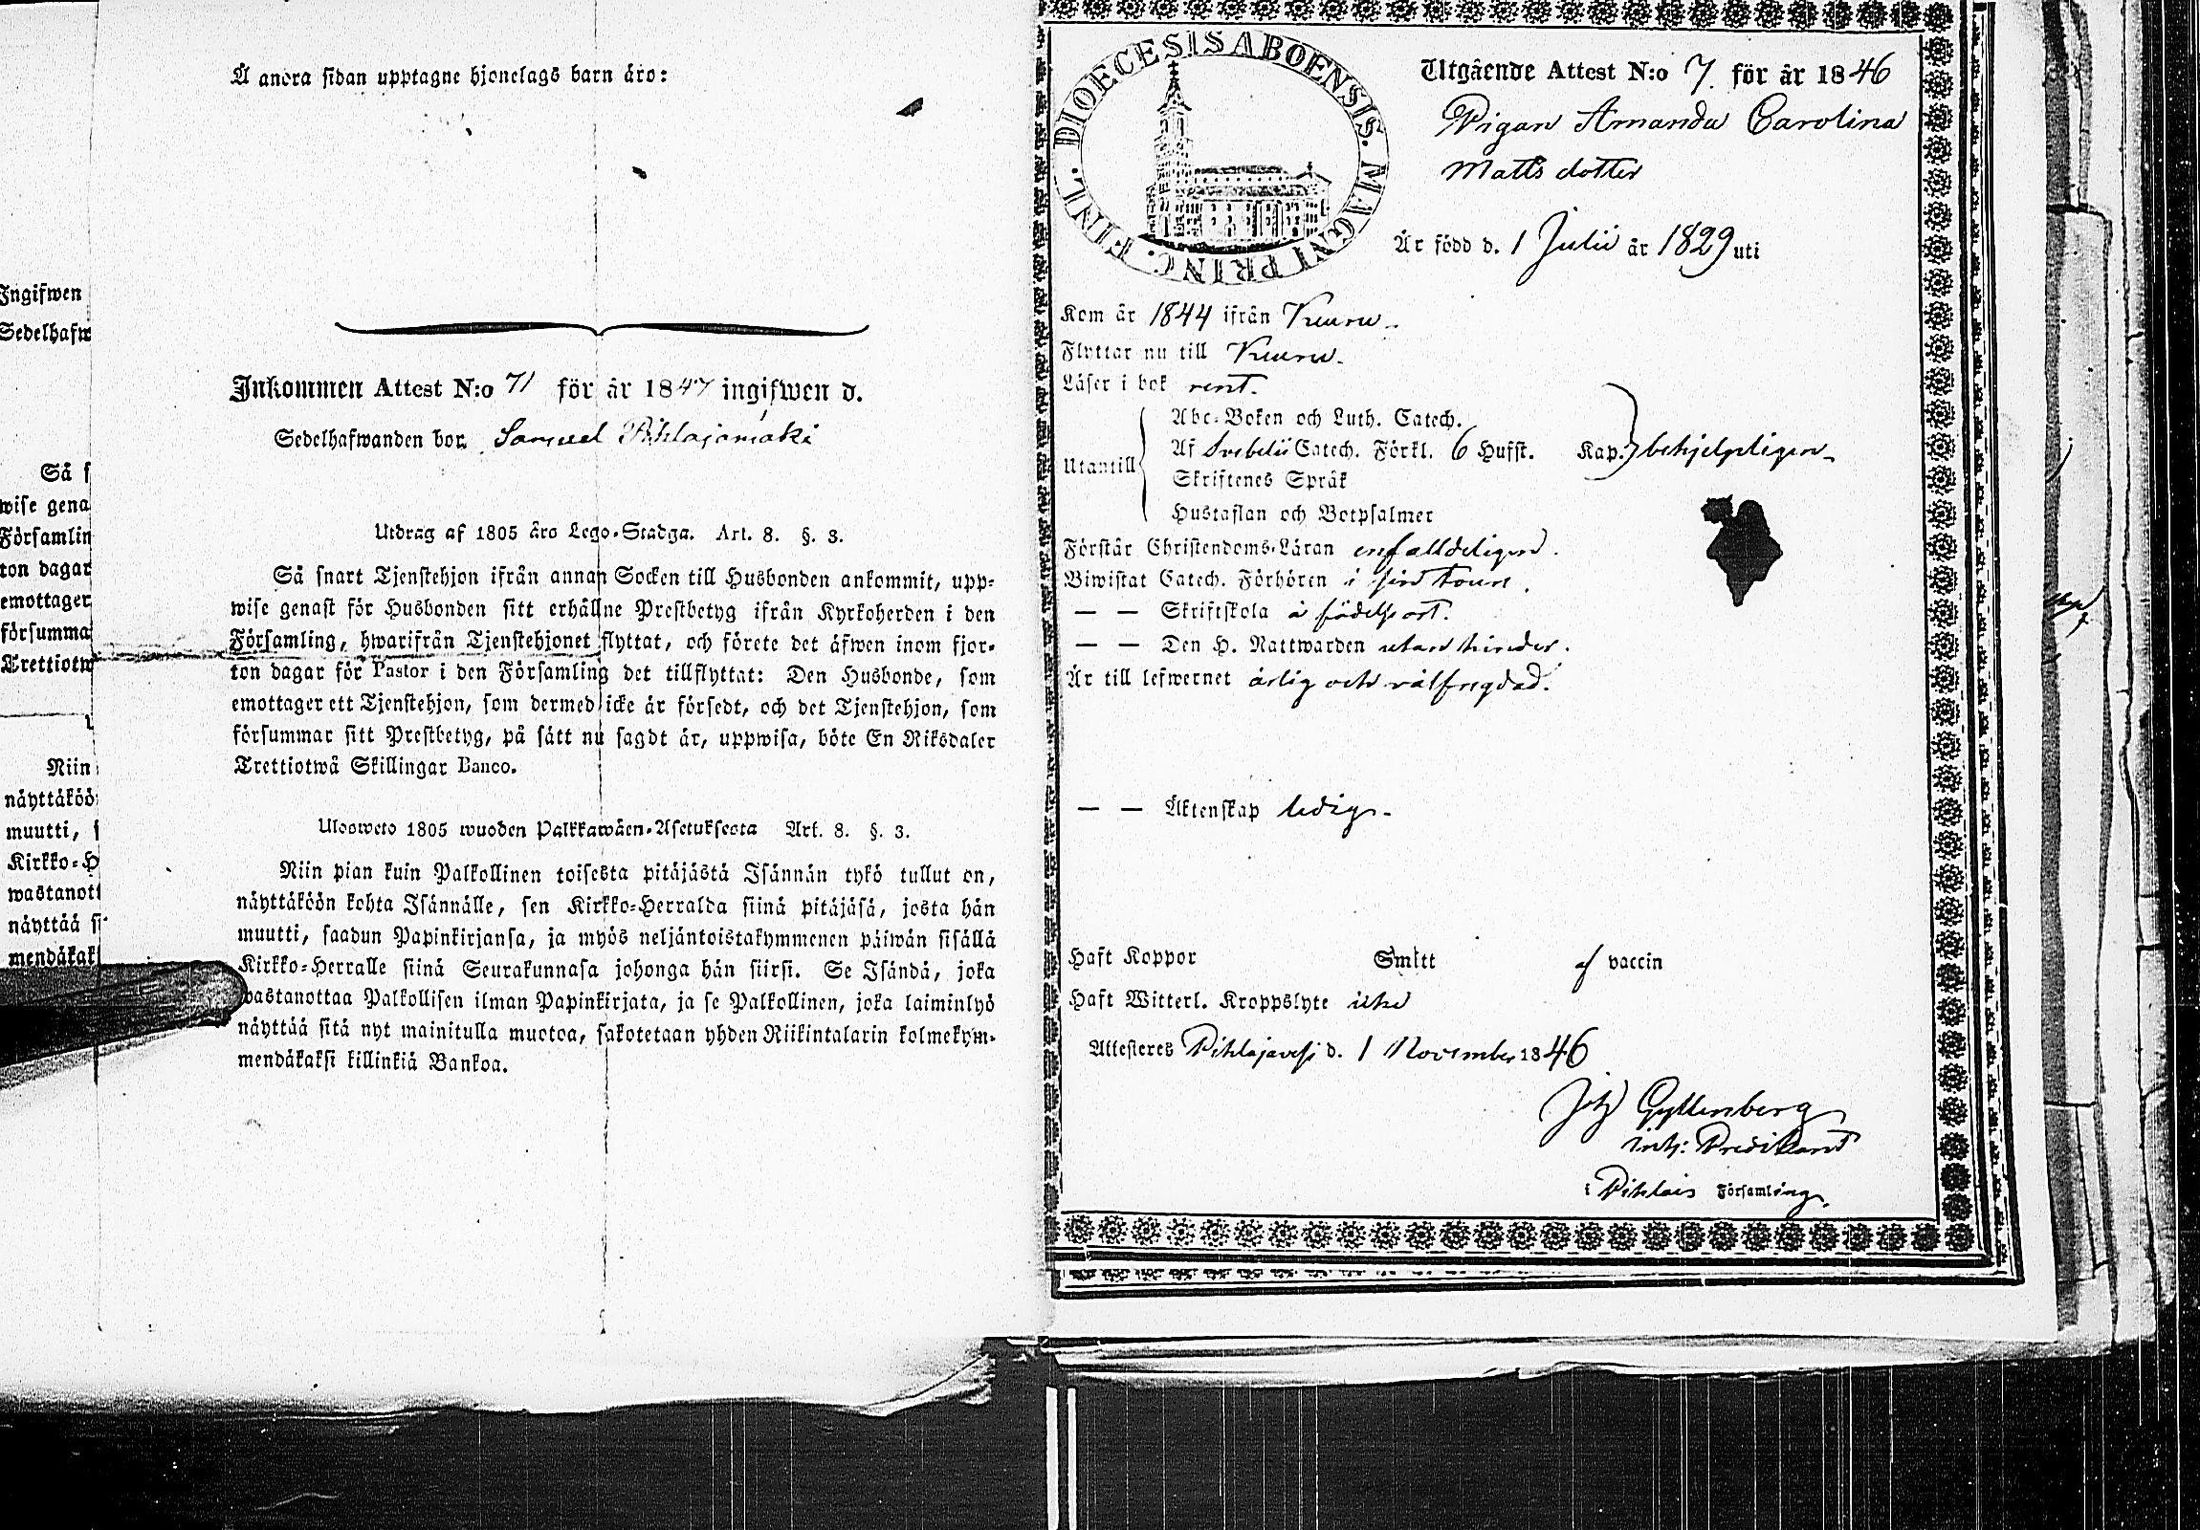 Å andra sidan upptagne hjonelags barn äro:
Inkommen Attest N:o 71 för år 1847 ingifwen d.
Sedelhafwanden bor Samuel Pihlajamäki
Utdrag af 1805 års Lego-Stadga. Art. 8. §. 3.
Så snart Tjenstehjon ifrån annan Socken till Husbonden ankommit, upp-
wise genast för Husbonden sitt erhållne Prestbetyg ifrån Kyrkoherden i den
Församling, hwarifrån Tjenstehjonet flyttat, och förete det äfwen inom fjor-
ton dagar för Pastor i den Församling det tillflyttat: Den Husbonde, som
emottager ett Tjenstehjon, som dermed icke är försedt, och det Tjenstehjon, som
försummar sitt Prestbetyg, på sätt nu sagdt är, uppwisa, böte En Riksdaler
Trettiotwå Skillingar Banco.
Ulosweto 1805 wuoden Palkkawäen-Asetuksesta Art. 8. §. 3.
Niin pian kuin Palkollinen toisesta pitäjästä Isännän tykö tullut on,
näyttäköön kohta Isännälle, sen Kirkko-Herralda siinä pitäjäsä, josta hän
muutti, saadun Papinkirjansa, ja myös neljäntoistakymmenen päiwän sisällä
Kirkko-Herralle siinä Seurakunnasa johonga hän siirsi. Se Isändä, joka
wastanottaa Palkollisen ilman Papinkirjata, ja se Palkollinen, joka laiminlyö
näyttää sitä nyt mainitulla muotoa, sakotetaan yhden Riikintalarin kolmekym-
mendäkaksi killinkiä Bankoa.
Ingifwen
Sedelhafw
Så s
wise gena
Församlin
ton dagar
emottager
försumma
Trettiotw
Niin
näyttäköö
muutti, s
Kirkko-H
wastanott
näyttää si
mendäkak
DIOECESIS ABOENSIS. MAGNI PRINC. FINL.
Utgående Attest N:o 7. för år 1846
Pigan Amanda Carolina
Matts dotter
Är född d. 1 Julii år 1829 uti
Kom år 1844 ifrån Keuru.
Flyttar nu till Keuru.
Läser i bok rent.
Utantill
Abc-Boken och Luth. Catech.
Af Svebelii Catech. Förkl. 6 Hufst. Kap. behjelpligen
Skriftenes Språk
Hustaflan och Botpsalmer
Förstår Christendoms-Läran enfalldeligen.
Biwistat Catech. Förhören i sin tour.
— — Skriftskola å födelseort.
— — Den H. Nattwarden utan hinder.
Är till lefwernet ärlig och välfregdad.
— — Äktenskap ledig.
Haft Koppor Smitt af vaccin
Haft Witterl. Kroppslyte icke
Attesteres Pihlajavesi d. 1 November 1846
Joh Gyllenberg
Predikant
i Pihlais Församling.